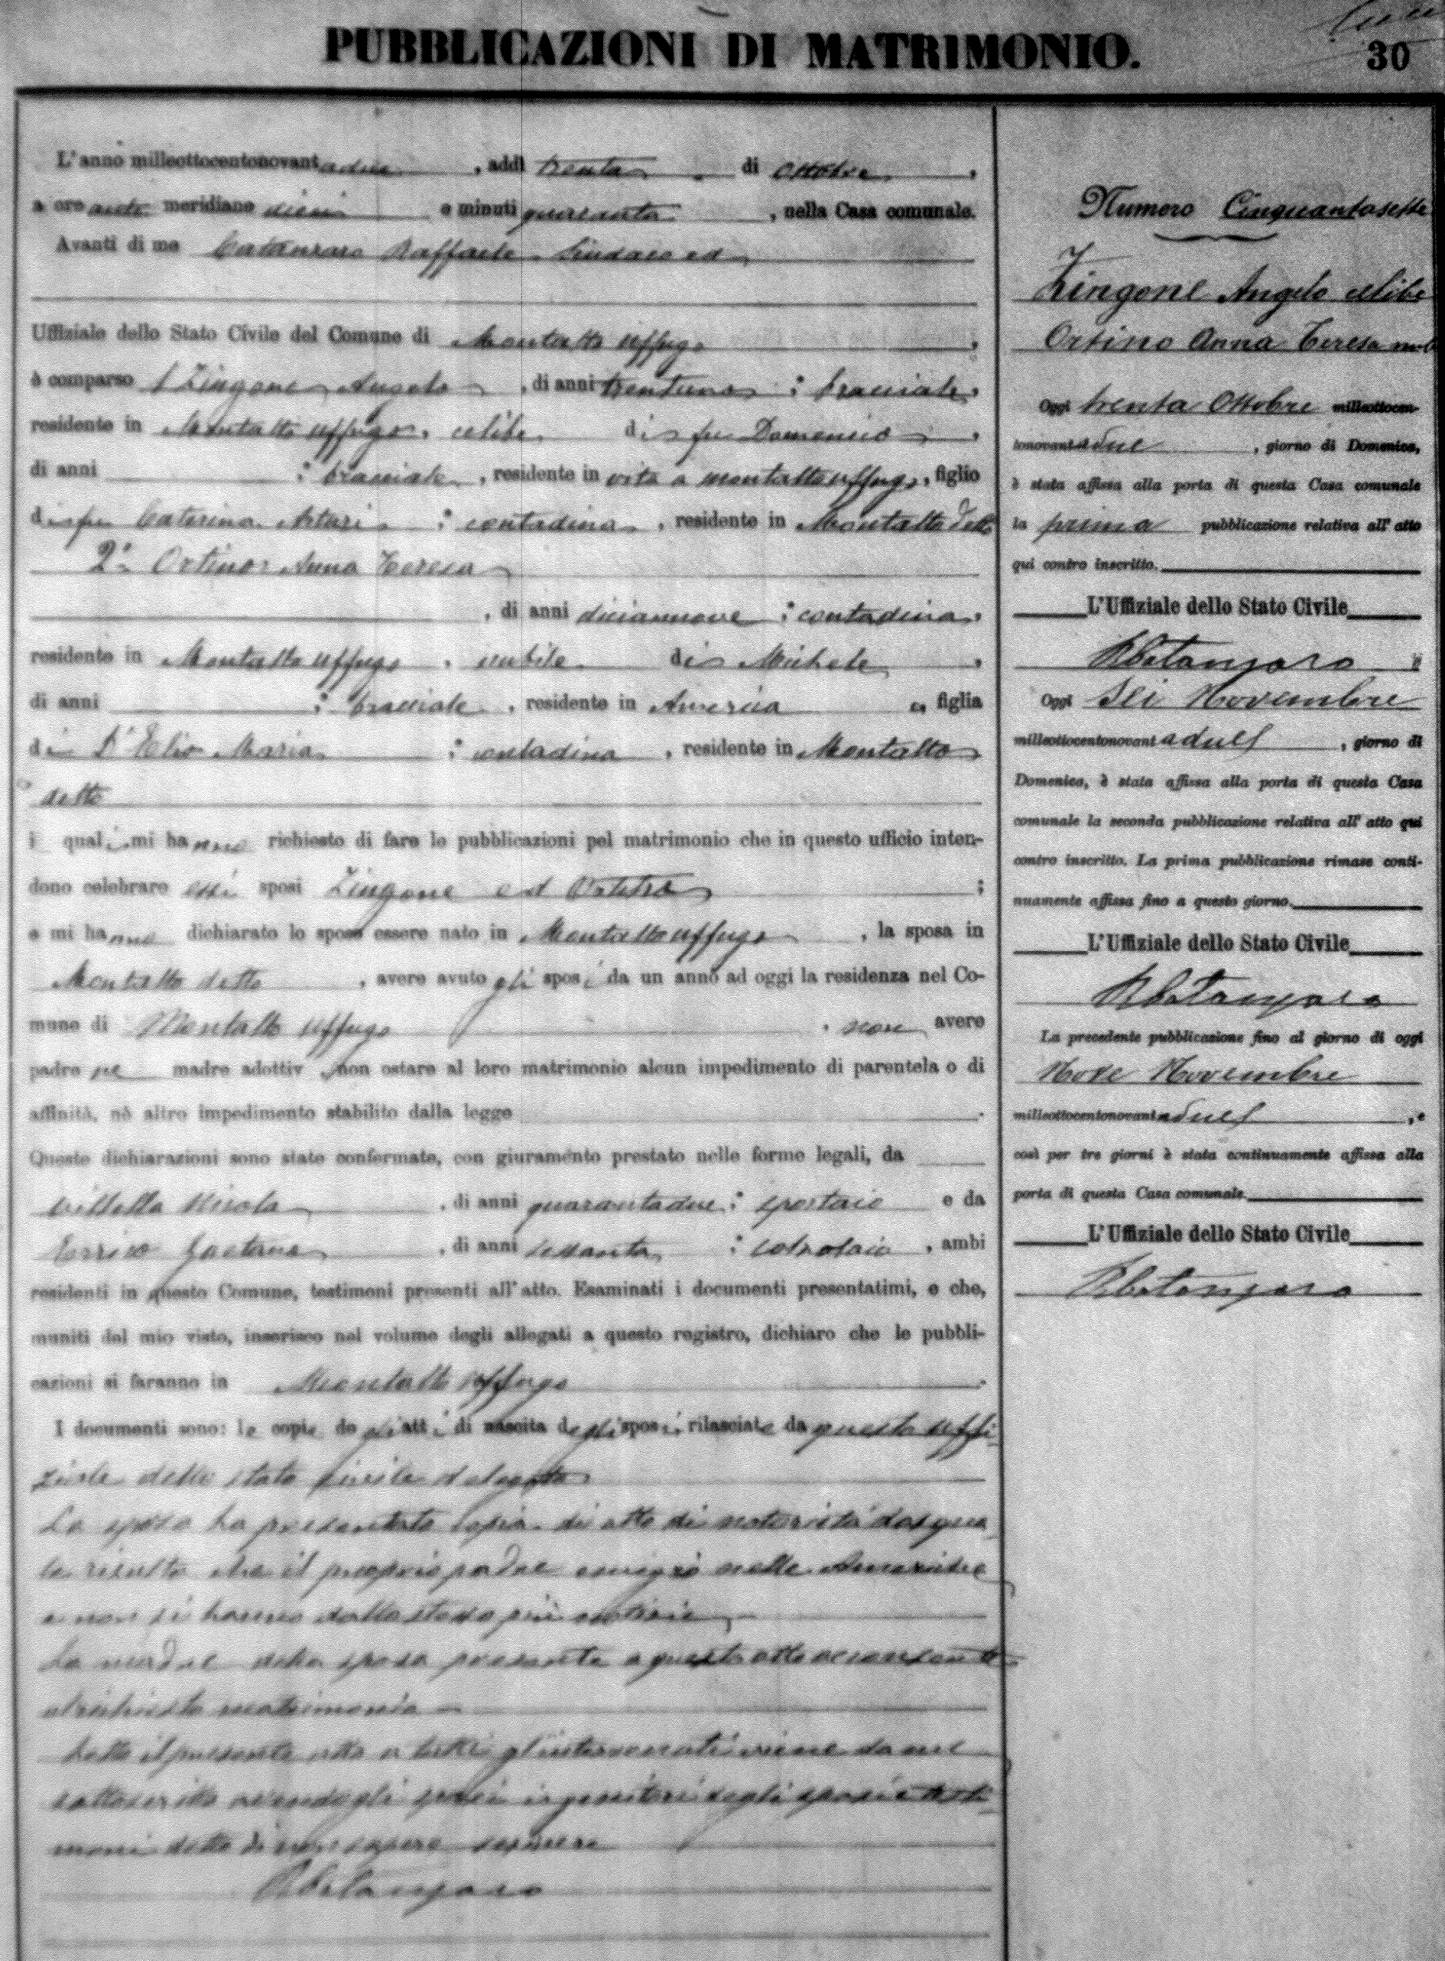 PUBBLICAZIONI DI MATRIMONIO.
30
L'anno milleottocentonovantadue, addì trenta di Ottobre,
a ore ante meridiane dieci e minuti quaranta, nella Casa comunale.
Avanti di me Catanzaro Raffaele Sindaco ed
Uffiziale dello Stato Civile del Comune di Montalto Uffugo,
è comparso 1 Zingone Angelo, di anni trentuno; bracciale,
residente in Montalto Uffugo, celibe di fu Domenico,
di anni ; bracciale, residente in vita a Montalto Uffugo, figlio
di fu Caterina Arturi; contadina, residente in Montalto detto
2° Ortino Anna Teresa
, di anni diciannove; contadina,
residente in Montalto Uffugo, nubile di Michele,
di anni ; bracciale, residente in America, figlia
di D'Elio Maria; contadina, residente in Montalto
detto
i quali mi hanno richiesto di fare le pubblicazioni pel matrimonio che in questo ufficio inten-
dono celebrare essi sposi Zingone ed Ortino;
e mi hanno dichiarato lo sposo essere nato in Montalto Uffugo, la sposa in
Montalto detto, avere avuto gli sposi da un anno ad oggi la residenza nel Co-
mune di Montalto Uffugo, non avere
padre ne madre adottiv non ostare al loro matrimonio alcun impedimento di parentela o di
affinità, nè altro impedimento stabilito dalla legge.
Queste dichiarazioni sono state confermate, con giuramento prestato nelle forme legali, da
Nicola, di anni quarantadue; sportaio e da
Errico Gaetano, di anni sessanta; , ambi
residenti in questo Comune, testimoni presenti all'atto. Esaminati i documenti presentatimi, e che,
muniti del mio visto, inserisco nel volume degli allegati a questo registro, dichiaro che le pubbli-
cazioni si faranno in Montalto Uffugo.
I documenti sono: le copie degli atti di nascita degli sposi rilasciate da questo Uffi-
ziale dello stato civile delegato
La sposa ha presentato copia di atto di notorietà dal qua-
le risulta che il proprio padre emigrò nelle Americhe
e non si hanno dallo stesso più notizie
La madre della sposa presente a questo atto acconsente
al richiesto matrimonio
Letto il presente atto a tutti gl'intervenuti viene da me
sottoscritto avendo gli sposi i genitori degli sposi e testi-
moni detto di non sapere scrivere
RCatanzaro
Numero Cinquantasette
Zingone Angelo celibe
Ortino Anna Teresa
Oggi trenta Ottobre milleottocen-
tonovantadue, giorno di Domenica,
è stata affissa alla porta di questa Casa comunale
la prima pubblicazione relativa all'atto
qui contro inscritto.
L'Uffiziale dello Stato Civile
RCatanzaro
Oggi Sei Novembre
milleottocentonovantadue, giorno di
Domenica, è stata affissa alla porta di questa Casa
comunale la seconda pubblicazione relativa all'atto qui
contro inscritto. La prima pubblicazione rimase conti-
nuamente affissa fino a questo giorno.
L'Uffiziale dello Stato Civile
RCatanzaro
La precedente pubblicazione fino al giorno di oggi
Nove Novembre
milleottocentonovantadue, e
così per tre giorni è stata continuamente affissa alla
porta di questa Casa comunale.
L'Uffiziale dello Stato Civile
RCatanzaro